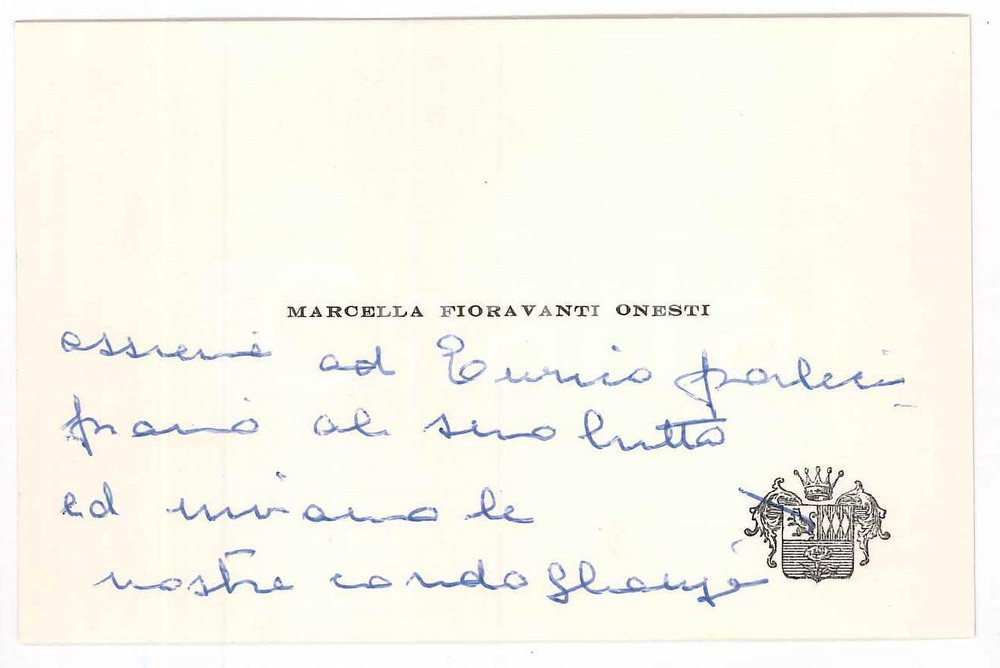 MARCELLA FIORAVANTI ONESTI
assieme ad Enrico parteci-
piamo al suo lutto
ed inviamo le
nostre condoglianze